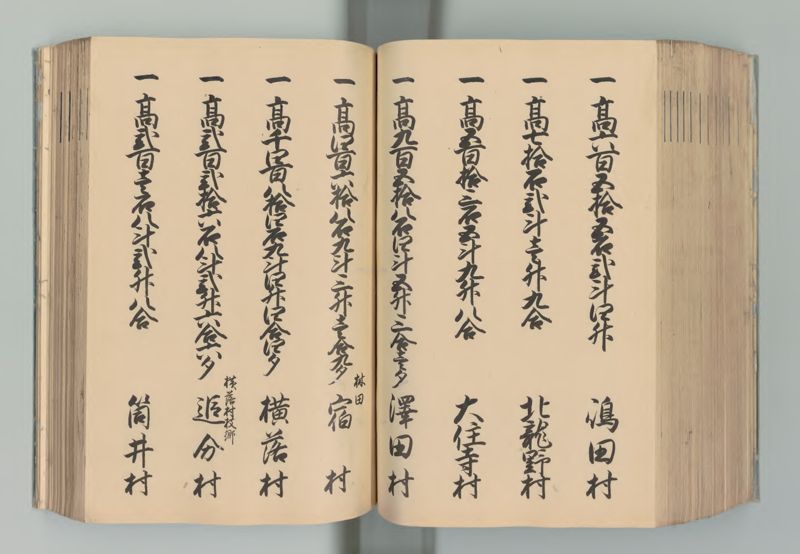 一 高六百五拾五石弐斗四升 嶋田村
一 高七拾石弐斗壱升九合 北龍野村
一 高五百拾三石五斗九升八合 大住寺村
一 高九百五拾八石四斗五升三合壱夕 澤田村
一 高四百六拾八石九斗三升壱合九夕 林田 宿村
一 高千四百八拾四石九斗四升四合四夕 横落村
一 高弐百弐拾六石八斗弐升六合六夕 横落村枝郷 追分村
一 高弐百壱石八斗弐升八合 筒井村